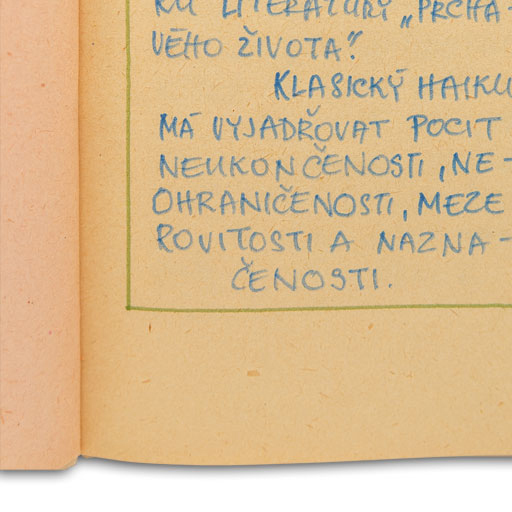 KU LITERATURY „PRCHA-
VÉHO ŽIVOTA".
KLASICKÝ HAIKU
MÁ VYJADŘOVAT POCIT
NEUKONČENOSTI, NE-
OHRANIČENOSTI, MEZE
ROVITOSTI A NAZNA-
ČENOSTI.